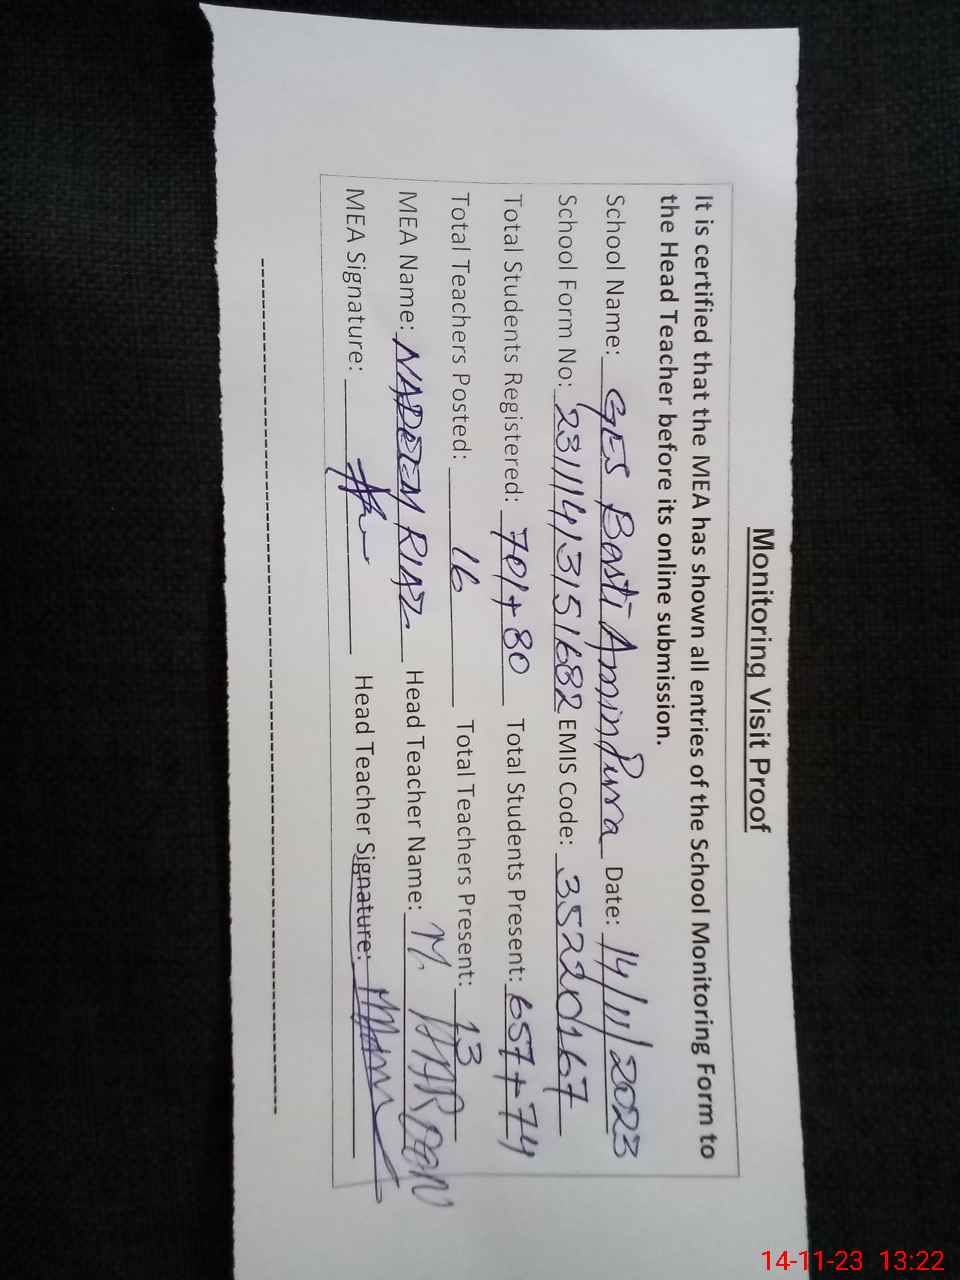 Monitoring Visit Proof
It is certified that the MEA has shown all entries of the School Monitoring Form to
the Head Teacher before its online submission.
School Name: GES Basti Amin Purra Date: 14/11/2023
School Form No: 23111413151682 EMIS Code: 35220167
Total Students Registered: 701+80 Total Students Present: 657+74
Total Teachers Posted: 16 Total Teachers Present: 13
MEA Name: NADEEM RIAZ Head Teacher Name: M. HAROON
MEA Signature: Head Teacher Signature:
14-11-23 13:22